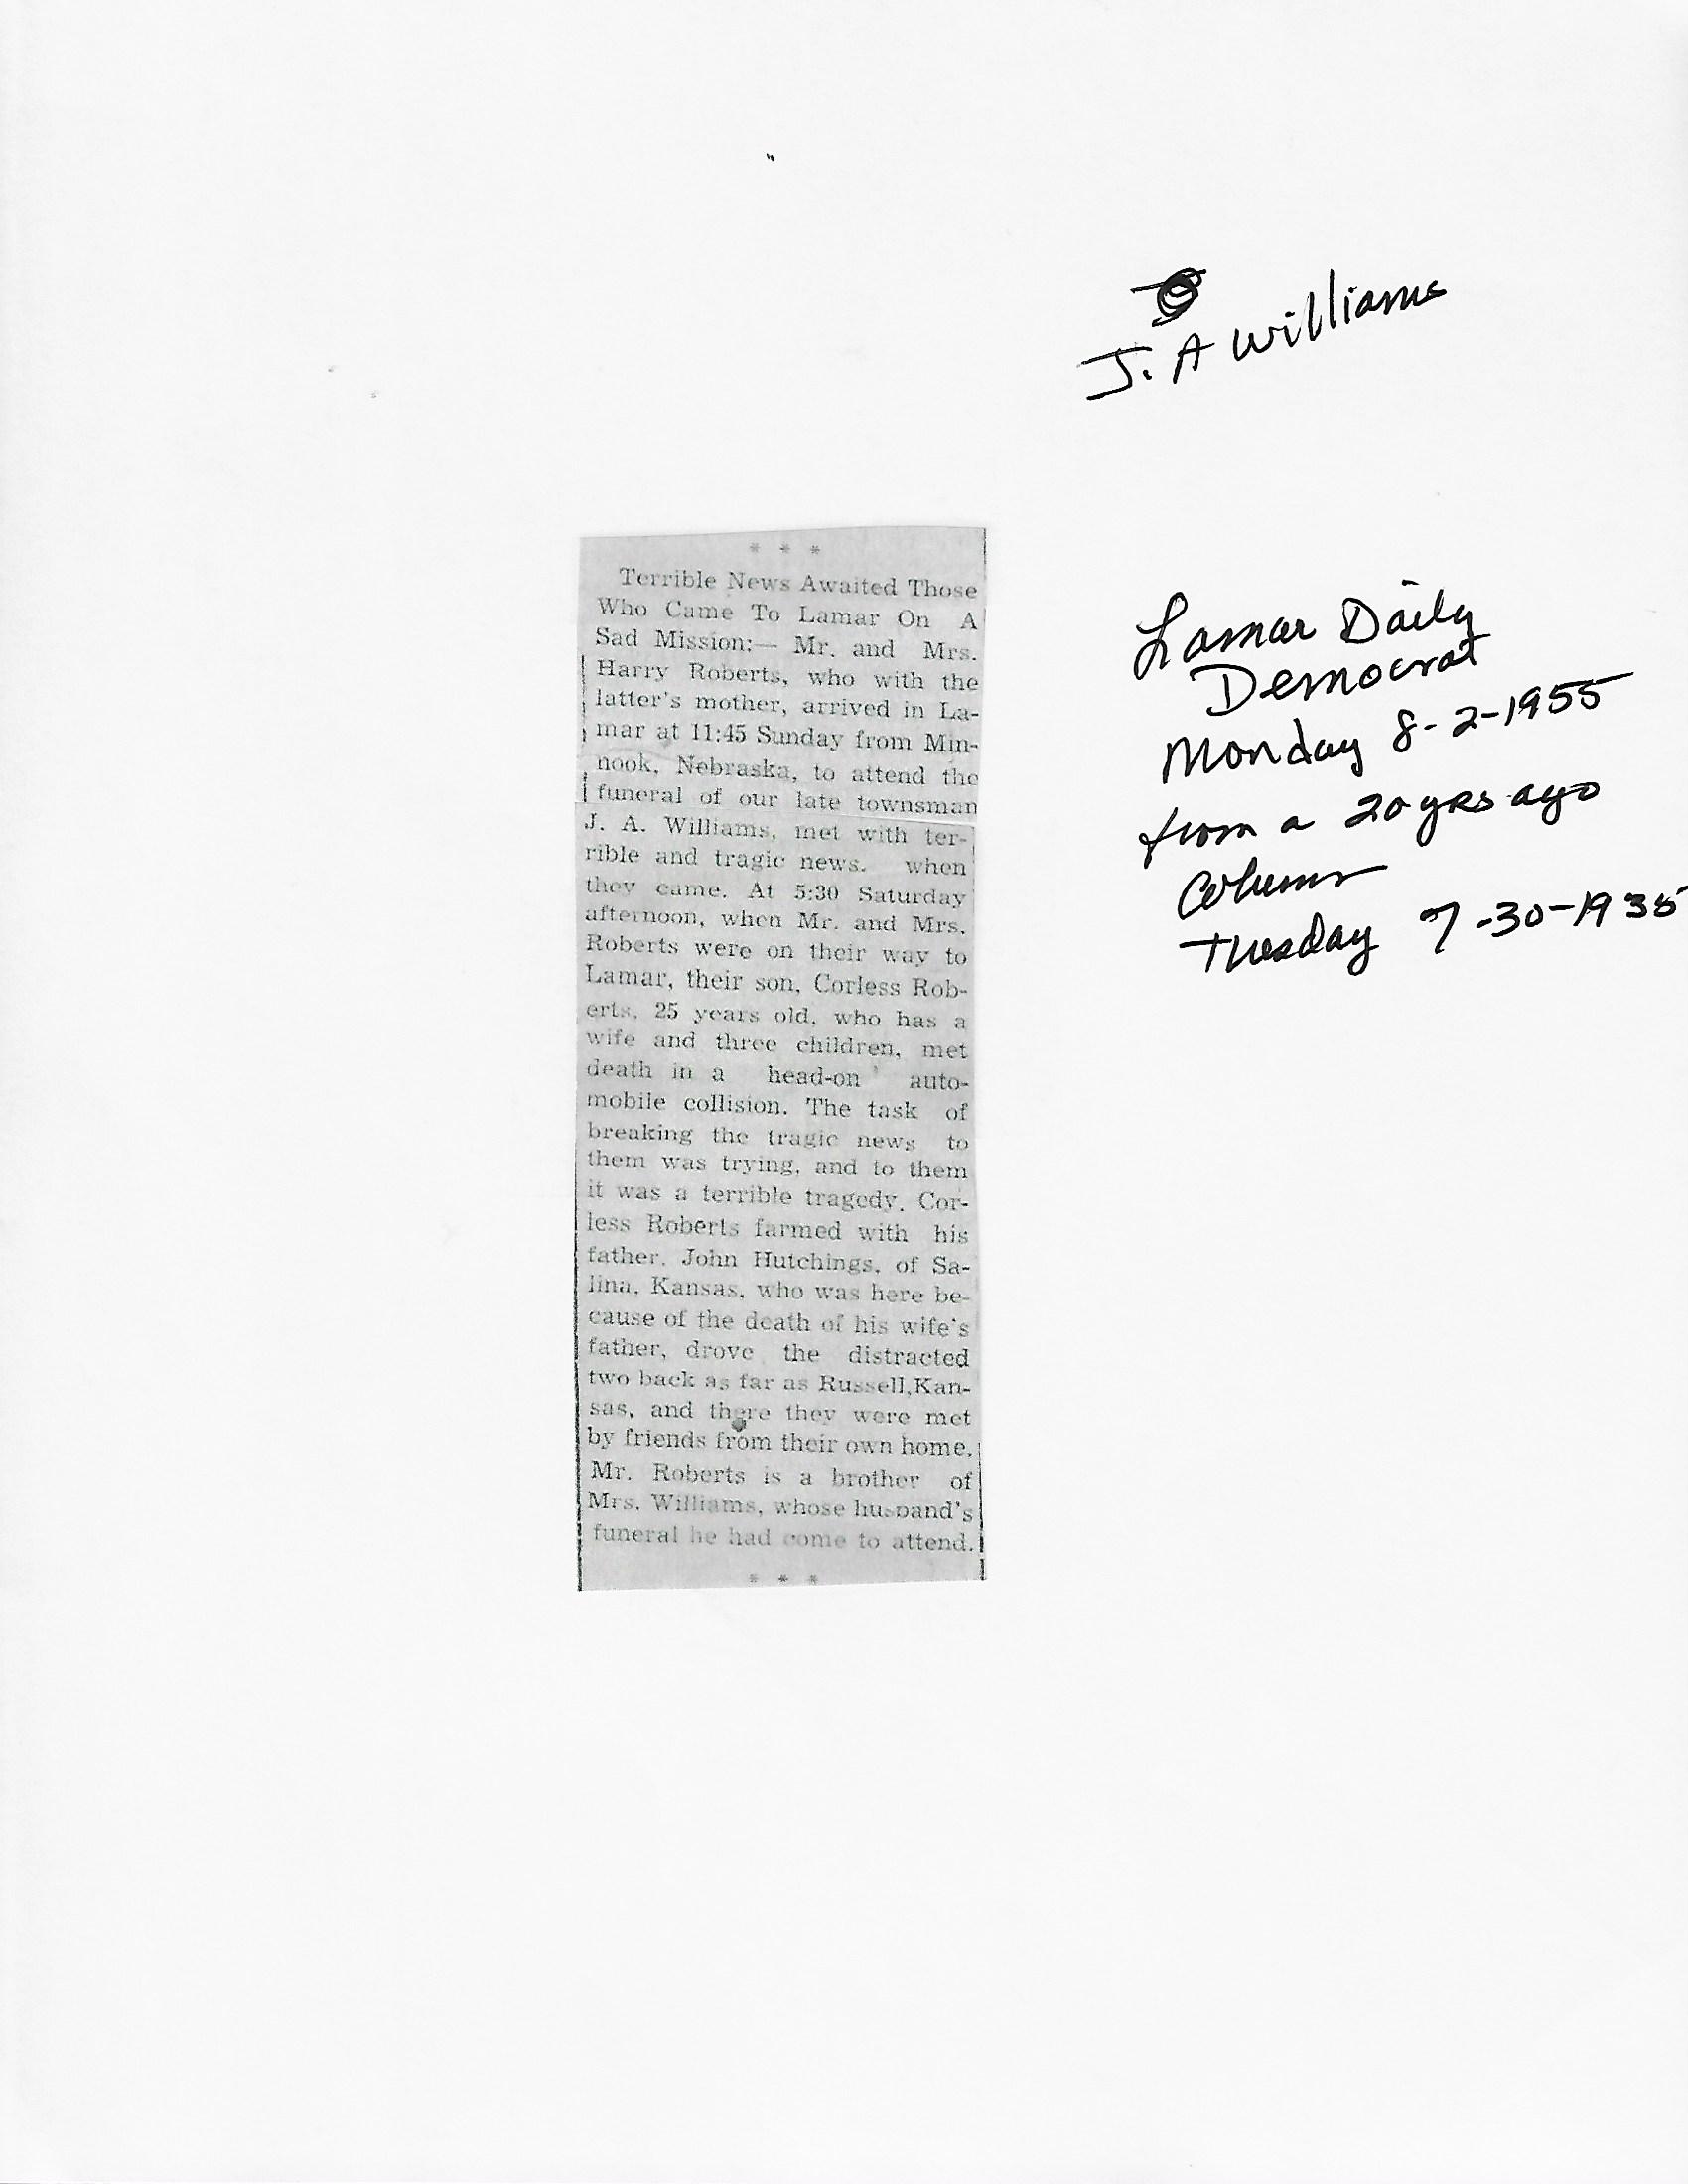 J. A Williams
* * *
Terrible News Awaited Those
Who Came To Lamar On A
Sad Mission:— Mr. and Mrs.
Harry Roberts, who with the
latter's mother, arrived in La-
mar at 11:45 Sunday from Min-
nook, Nebraska, to attend the
funeral of our late townsman
J. A. Williams, met with ter-
rible and tragic news. when
they came. At 5:30 Saturday
afternoon, when Mr. and Mrs.
Roberts were on their way to
Lamar, their son, Corless Rob-
erts, 25 years old, who has a
wife and three children, met
death in a head-on auto-
mobile collision. The task of
breaking the tragic news to
them was trying, and to them
it was a terrible tragedy. Cor-
less Roberts farmed with his
father. John Hutchings, of Sa-
lina, Kansas, who was here be-
cause of the death of his wife's
father, drove the distracted
two back as far as Russell,Kan-
sas, and there they were met
by friends from their own home.
Mr. Roberts is a brother of
Mrs. Williams, whose husband's
funeral he had come to attend.
* * *
Lamar Daily
Democrat
Monday 8-2-1955
from a 20 yrs ago
Column
Tuesday 7-30-1935